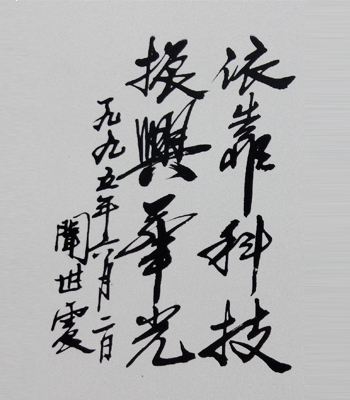 依靠科技
振興華光
一九九五年六月二日
聞世震